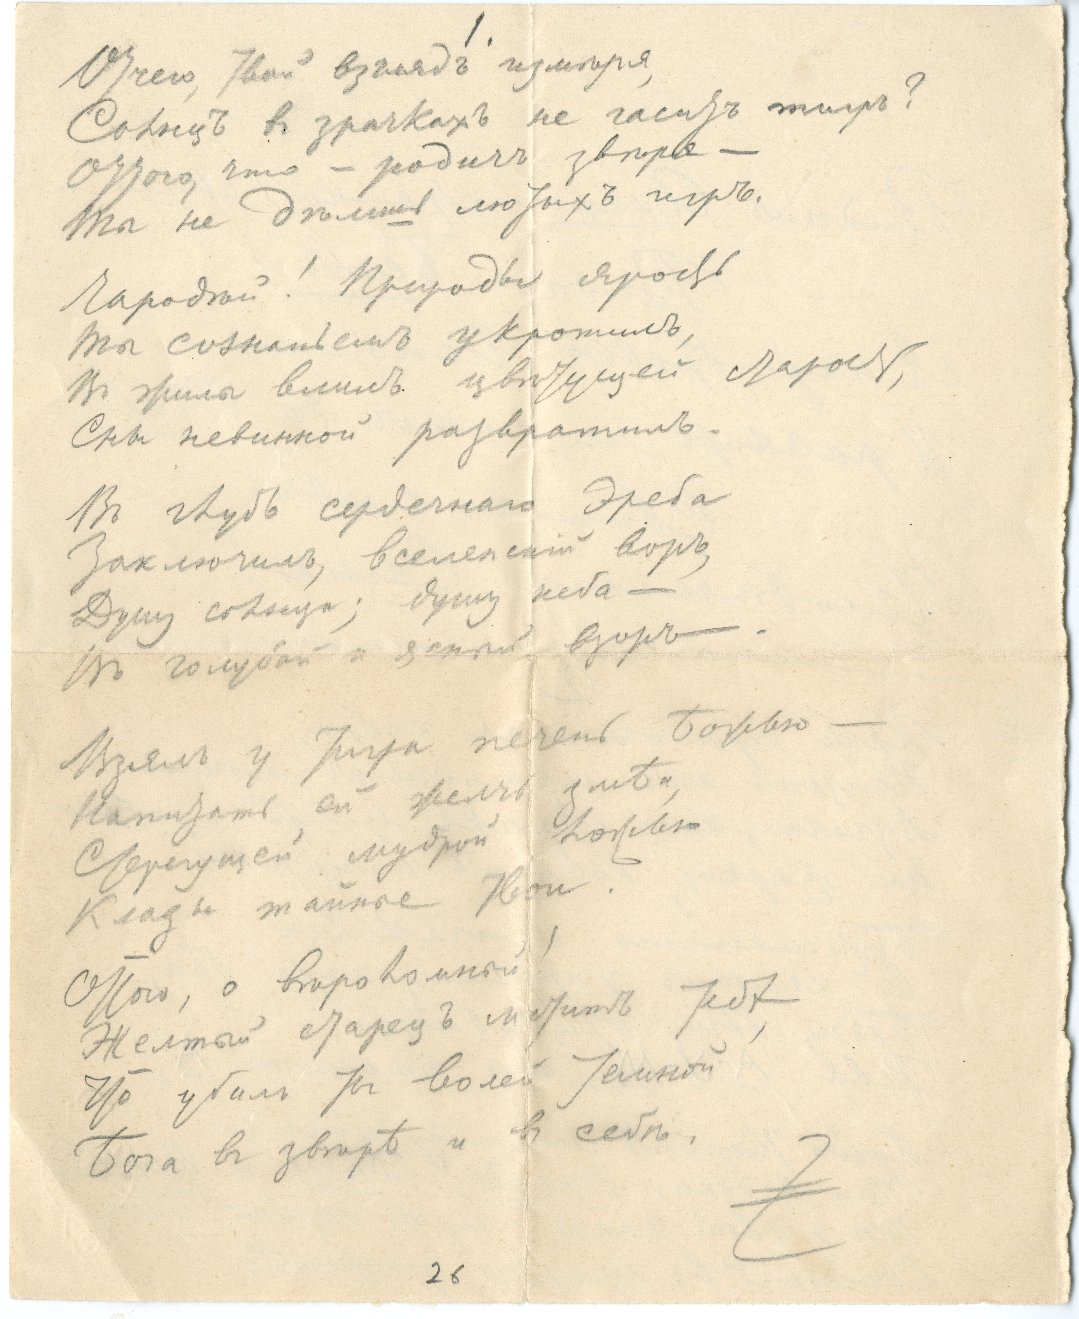 1.
Отчего, твой взглядъ измѣря,
Солнцъ въ зрачкахъ не гаситъ тигръ?
Оттого, что — родичъ звѣря —
Ты не дѣлишь лютыхъ игръ.
Чародѣй! Природы ярость
Ты сознаньемъ укротилъ,
Въ жилы влилъ цвѣтущей старость,
Сны невинной развратилъ.
Въ глубь сердечнаго Эреба
Заключилъ, вселенскій воръ,
Душу солнца; душу неба —
Въ голубой и ясный взоръ —.
Взялъ у тигра печень Божью —
Напитать ей желчь змѣи,
Стерегущей мудрой ложью
Клады тайные твои.
Оттого, о вѣроломный!
Желтый старецъ мститъ тебѣ,
Что убилъ ты волей темной
Бога въ звѣрѣ и въ себѣ.
26